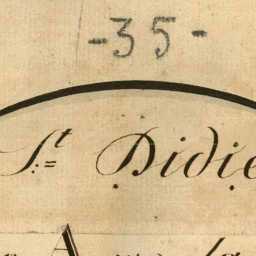 -35-
St Didie